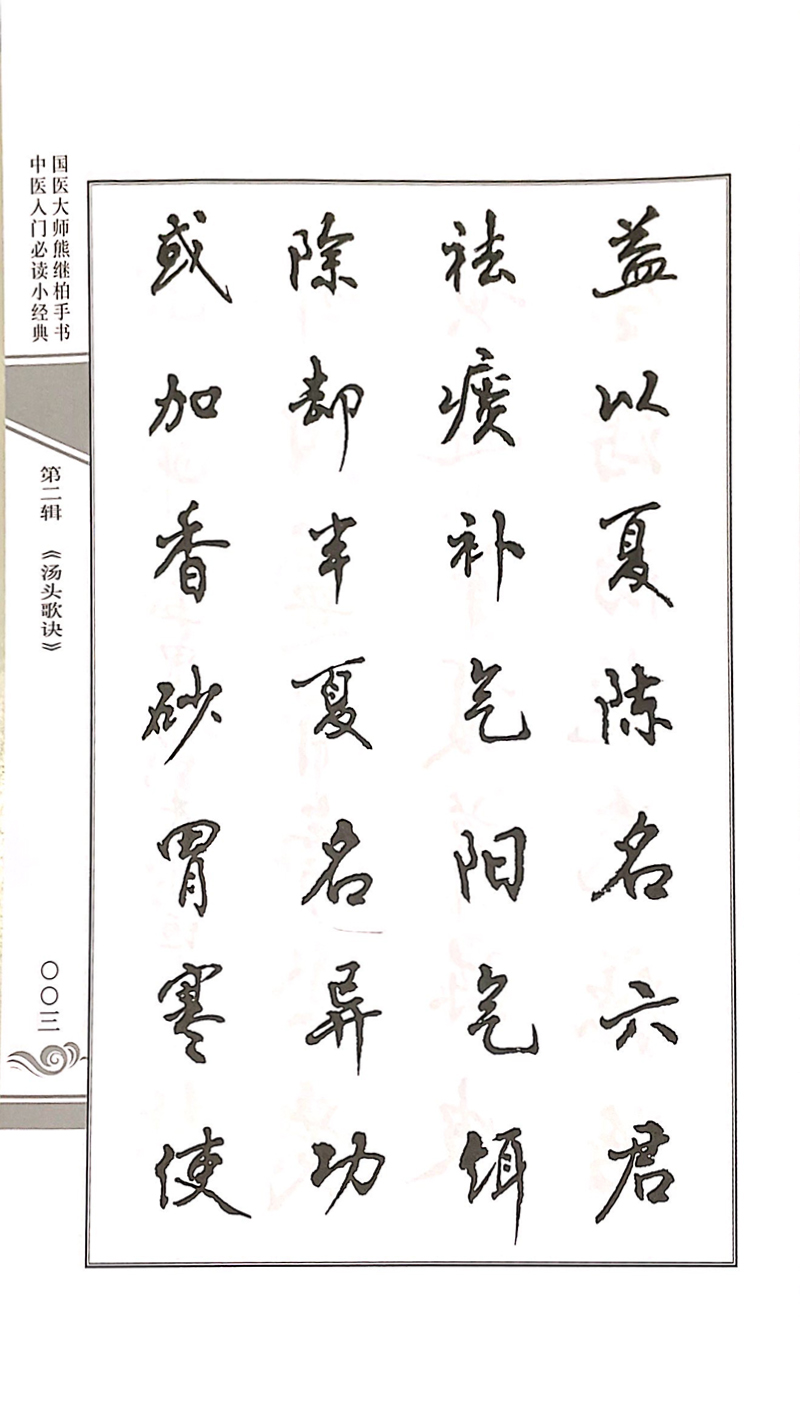 益以夏陈名六君
祛痰补气阳气饵
除却半夏名异功
或加香砂胃寒使
国医大师熊继柏手书
中医入门必读小经典
第二辑 《汤头歌诀》
〇〇三